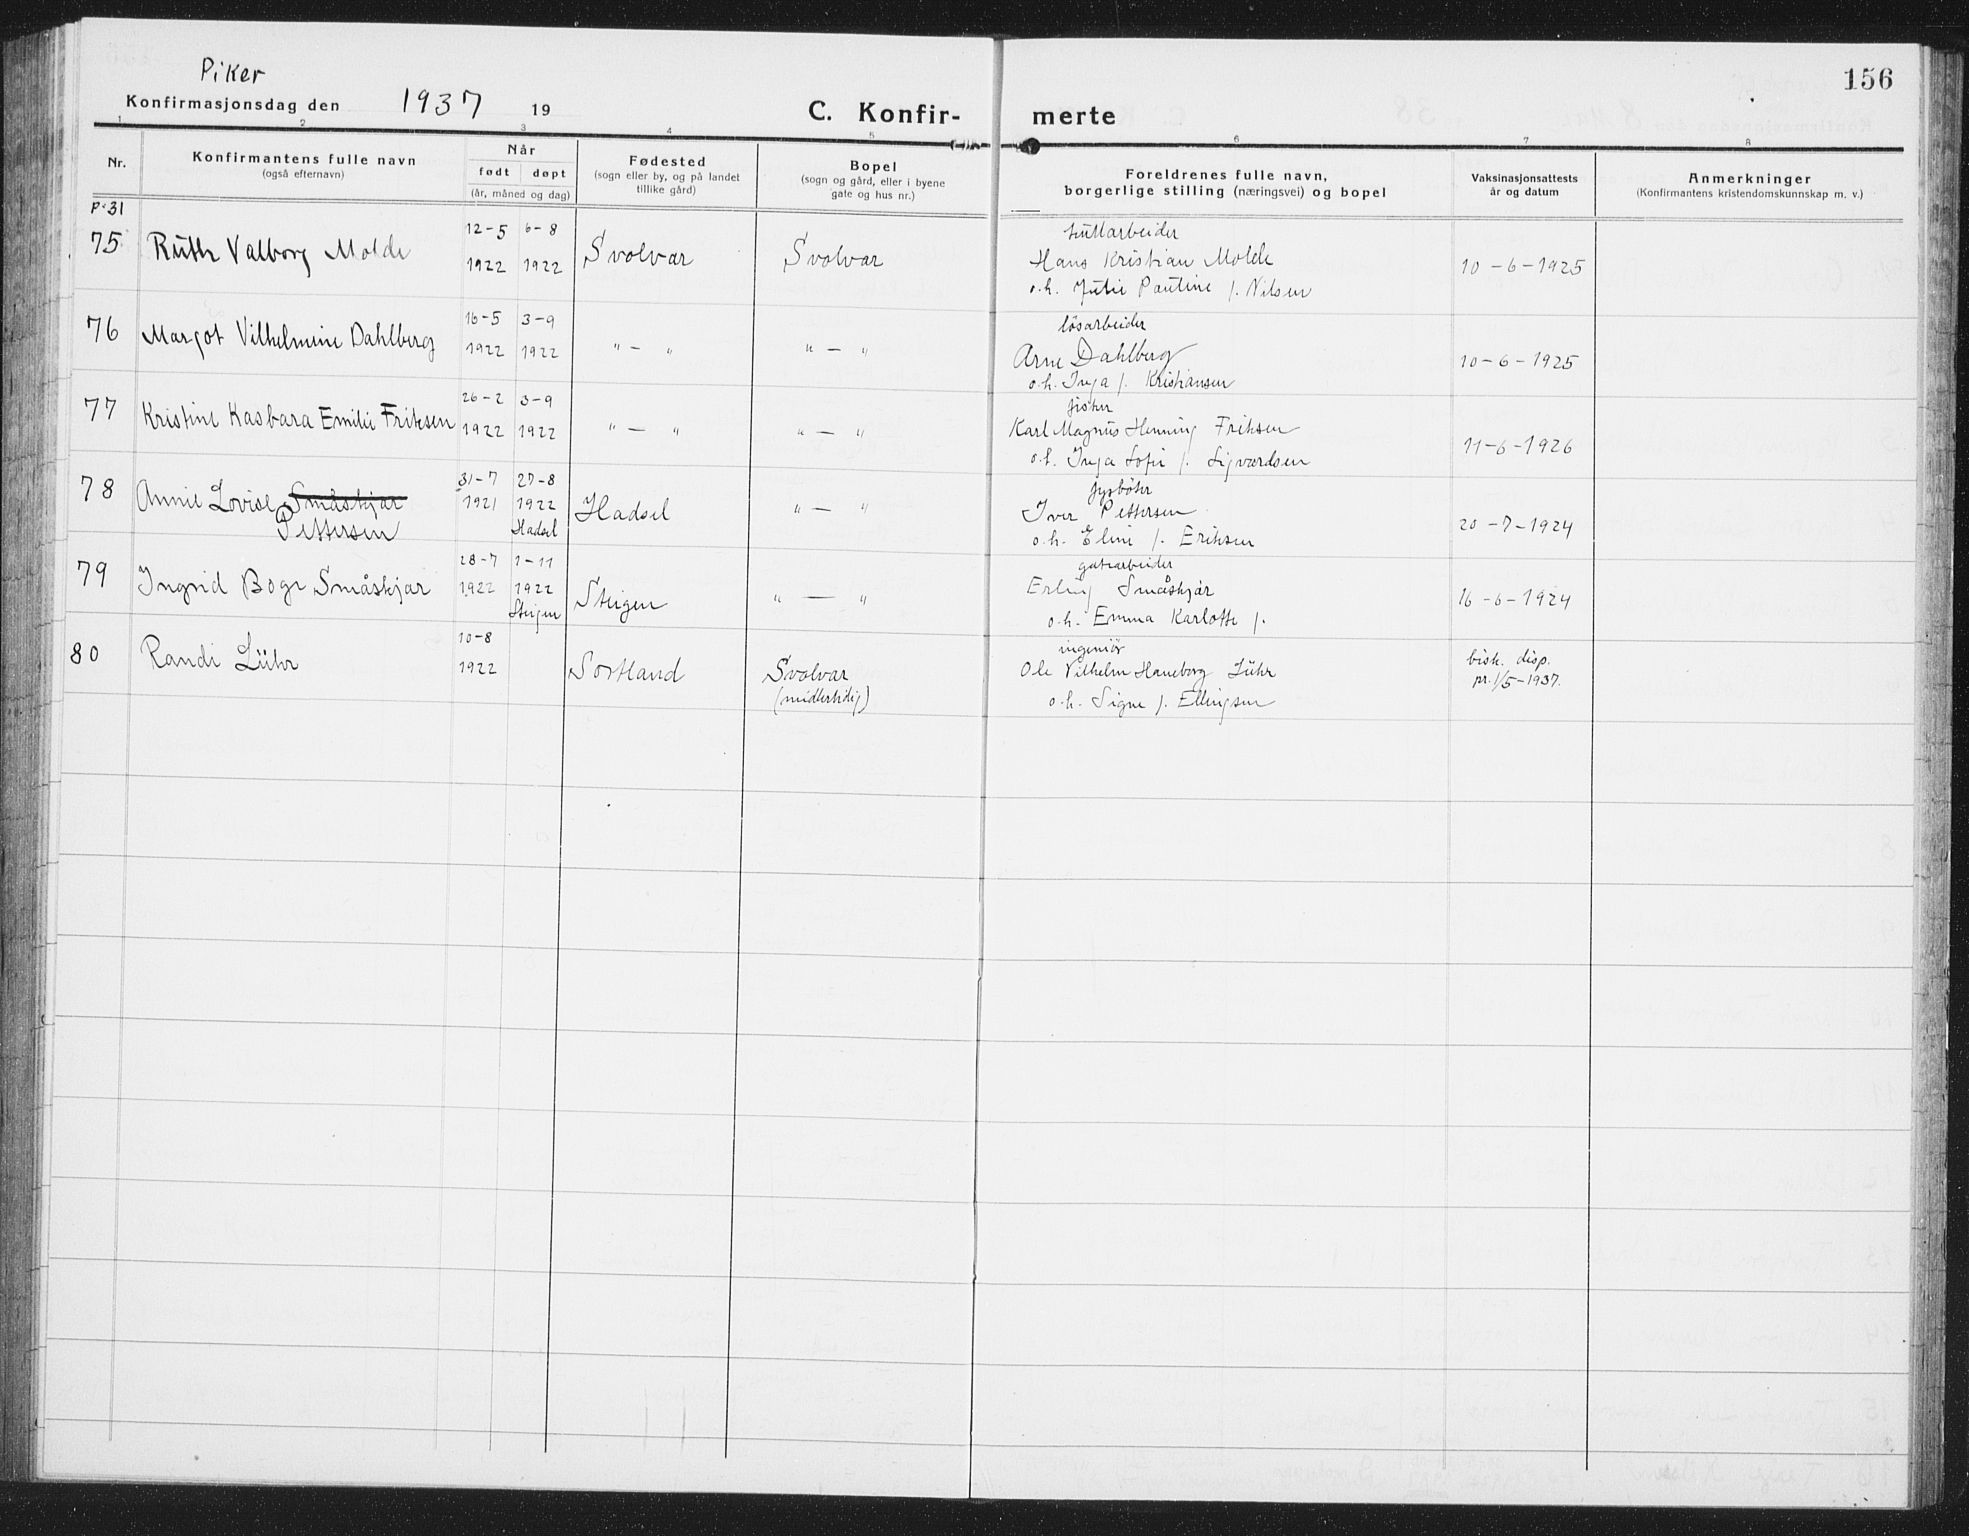 Piker
156
Konfirmasjonsdag den 1937 19
C. Konfir- merte
1 2 3 4 5 6 7 8
Nr.
Konfirmantens fulle navn
(også efternavn)
Når
født døpt
(år, måned og dag)
Fødested
(sogn eller by, og på landet
tillike gård)
Bopel
(sogn og gård, eller i byene
gate og hus nr.)
Foreldrenes fulle navn,
borgerlige stilling (næringsvei) og bopel
Vaksinasjonsattests
år og datum
Anmerkninger
(Konfirmantens kristendomskunnskap m. v.)
P. 31
75 Ruth Valborg Molde
12-5 6-8
1922 1922
Svolvær Svolvær
Hans Kristian Molde
o.h. Julie Pauline f. Nilsen
10-6-1925
76 Margot Vilhelmine Dahlberg
16-5 3-9
1922 1922
" — " " — "
løsarbeider
Arne Dahlberg
o.h. Inga f. Kristiansen
10-6-1925
77 Kristine Kasbara Emilie Friksen
26-2 3-9
1922 1922
" — " " — "
fisker
Karl Magnus Henning Friksen
o.h. Inga Sofie f. Sigvardsen
11-6-1926
78 Annie Lovise Småskjær
Pettersen
31-7 27-8
1921 1922
Hadsel
Hadsel " — "
fyrbøter
Iver Pettersen
o.h. Eline f. Eriksen
20-7-1924
79 Ingrid Småskjær
28-7 1-11
1922 1922
Steigen
Steigen " — "
gatearbeider
Erling Småskjær
o.h. Emma Karlotte f.
16-6-1924
80 Randi Lühr
10-8
1922
Sortland Svolvær
(midlertidig)
ingeniør
Ole Vilhelm Haneborg Lühr
o.h. Signe f. Ellingsen
bisk. disp.
pr. 1/5-1937.